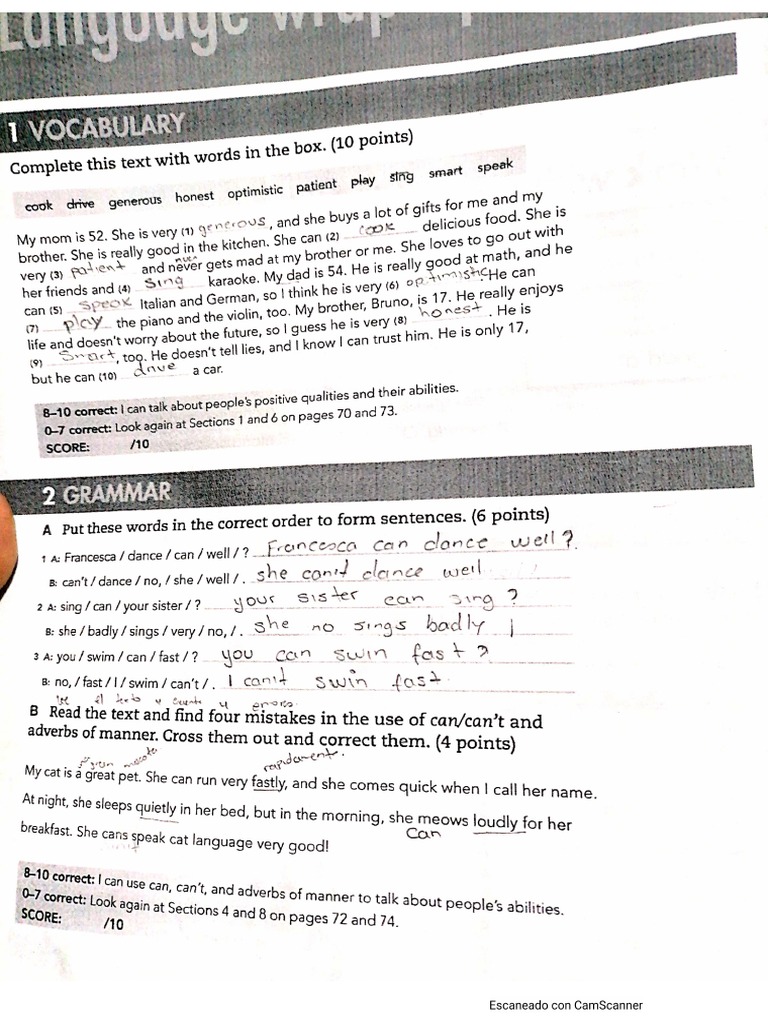 Language wrap
1 VOCABULARY
Complete this text with words in the box. (10 points)
cook drive generous honest optimistic patient play sing smart speak
My mom is 52. She is very (1) generous, and she buys a lot of gifts for me and my
brother. She is really good in the kitchen. She can (2) cook delicious food. She is
very (3) patient and never gets mad at my brother or me. She loves to go out with
her friends and (4) sing karaoke. My dad is 54. He is really good at math, and he
can (5) speak Italian and German, so I think he is very (6) optimistic. He can
(7) play the piano and the violin, too. My brother, Bruno, is 17. He really enjoys
life and doesn't worry about the future, so I guess he is very (8) honest. He is
(9) Smart, too. He doesn't tell lies, and I know I can trust him. He is only 17,
but he can (10) drive a car.
8–10 correct: I can talk about people's positive qualities and their abilities.
0–7 correct: Look again at Sections 1 and 6 on pages 70 and 73.
SCORE: /10
2 GRAMMAR
A Put these words in the correct order to form sentences. (6 points)
1 A: Francesca / dance / can / well / ? Francesca can dance well?
B: can't / dance / no, / she / well / . she can't dance well
2 A: sing / can / your sister / ? your sister can sing?
B: she / badly / sings / very / no, / . she no sings badly
3 A: you / swim / can / fast / ? you can swin fast?
B: no, / fast / I / swim / can't / . I can't swin fast.
B Read the text and find four mistakes in the use of can/can't and
adverbs of manner. Cross them out and correct them. (4 points)
rapidament.
My cat is a great pet. She can run very fastly, and she comes quick when I call her name.
At night, she sleeps quietly in her bed, but in the morning, she meows loudly for her
Can
breakfast. She cans speak cat language very good!
8–10 correct: I can use can, can't, and adverbs of manner to talk about people's abilities.
0–7 correct: Look again at Sections 4 and 8 on pages 72 and 74.
SCORE: /10
Escaneado con CamScanner